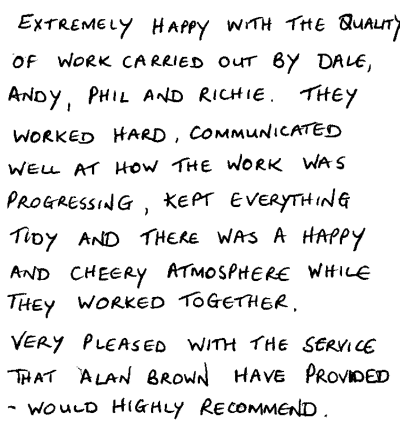 EXTREMELY HAPPY WITH THE QUALITY
OF WORK CARRIED OUT BY DALE,
ANDY, PHIL AND RICHIE. THEY
WORKED HARD, COMMUNICATED
WELL AT HOW THE WORK WAS
PROGRESSING, KEPT EVERYTHING
TIDY AND THERE WAS A HAPPY
AND CHEERY ATMOSPHERE WHILE
THEY WORKED TOGETHER.
VERY PLEASED WITH THE SERVICE
THAT ALAN BROWN HAVE PROVIDED
- WOULD HIGHLY RECOMMEND.